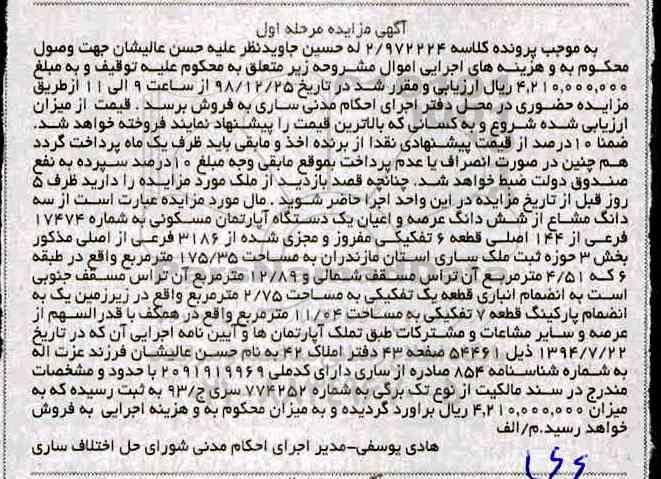 آگهی مزایده مرحله اول
به موجب پرونده کلاسه ۲/۹۷۲۲۲۴ له حسین جاویدنظر علیه حسن عالیشان جهت وصول
محکوم به و هزینه های اجرایی اموال مشروحه زیر متعلق به محکوم علیه توقیف و به مبلغ
۴,۲۱۰,۰۰۰,۰۰۰ ریال ارزیابی و مقرر شد در تاریخ ۹۸/۱۲/۲۵ از ساعت ۹ الی ۱۱ ازطریق
مزایده حضوری در محل دفتر اجرای احکام مدنی ساری به فروش برسد . قیمت از میزان
ارزیابی شده شروع و به کسانی که بالاترین قیمت را پیشنهاد نمایند فروخته خواهد شد.
ضمنا ۱۰درصد از قیمت پیشنهادی نقدا از برنده اخذ و مابقی باید ظرف یک ماه پرداخت گردد
هم چنین در صورت انصراف یا عدم پرداخت بموقع مابقی وجه مبلغ ۱۰درصد سپرده به نفع
صندوق دولت ضبط خواهد شد. چنانچه قصد بازدید از ملک مورد مزایده را دارید ظرف ۵
روز قبل از تاریخ مزایده در این واحد اجرا حاضر شوید . مال مورد مزایده عبارت است از سه
دانگ مشاع از شش دانگ عرصه و اعیان یک دستگاه آپارتمان مسکونی به شماره ۱۷۴۷۴
فرعی از ۱۴۴ اصلی قطعه ۶ تفکیکی مفروز و مجزی شده از ۳۱۸۶ فرعی از اصلی مذکور
بخش ۳ حوزه ثبت ملک ساری استان مازندران به مساحت ۱۷۵/۳۵ مترمربع واقع در طبقه
۶ که ۴/۵۱ مترمربع آن تراس مسقف شمالی و ۱۲/۸۹ مترمربع آن تراس مسقف جنوبی
است به انضمام انباری قطعه یک تفکیکی به مساحت ۲/۷۵ مترمربع واقع در زیرزمین یک به
انضمام پارکینگ قطعه ۷ تفکیکی به مساحت ۱۱/۰۴ مترمربع واقع در همکف با قدرالسهم از
عرصه و سایر مشاعات و مشترکات طبق تملک آپارتمان ها و آیین نامه اجرایی آن که در تاریخ
۱۳۹۴/۷/۲۲ ذیل ۵۴۴۶۱ صفحه ۴۳ دفتر املاک ۴۲ به نام حسن عالیشان فرزند عزت اله
به شماره شناسنامه ۸۵۴ صادره از ساری دارای کدملی ۲۰۹۱۹۱۹۹۶۹ با حدود و مشخصات
مندرج در سند مالکیت از نوع تک برگی به شماره ۷۷۴۲۵۲ سری ج/۹۳ به ثبت رسیده که به
میزان ۴,۲۱۰,۰۰۰,۰۰۰ ریال براورد گردیده و به میزان محکوم به و هزینه اجرایی به فروش
خواهد رسید.م/الف
هادی یوسفی-مدیر اجرای احکام مدنی شورای حل اختلاف ساری